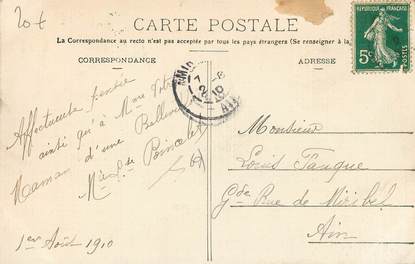 20 f
CARTE POSTALE
La Correspondance au recto n'est pas acceptée par tous les pays étrangers (Se renseigner à la
CORRESPONDANCE
ADRESSE
REPUBLIQUE FRANÇAISE
5c
7 - 8
10
AIN
Affectueuse pensée
ainsi qu'à Mme
Maman d'une
de Poncelet
1er Août 1910
Monsieur
Louis Tanque
Gde Rue de Miribel
Ain